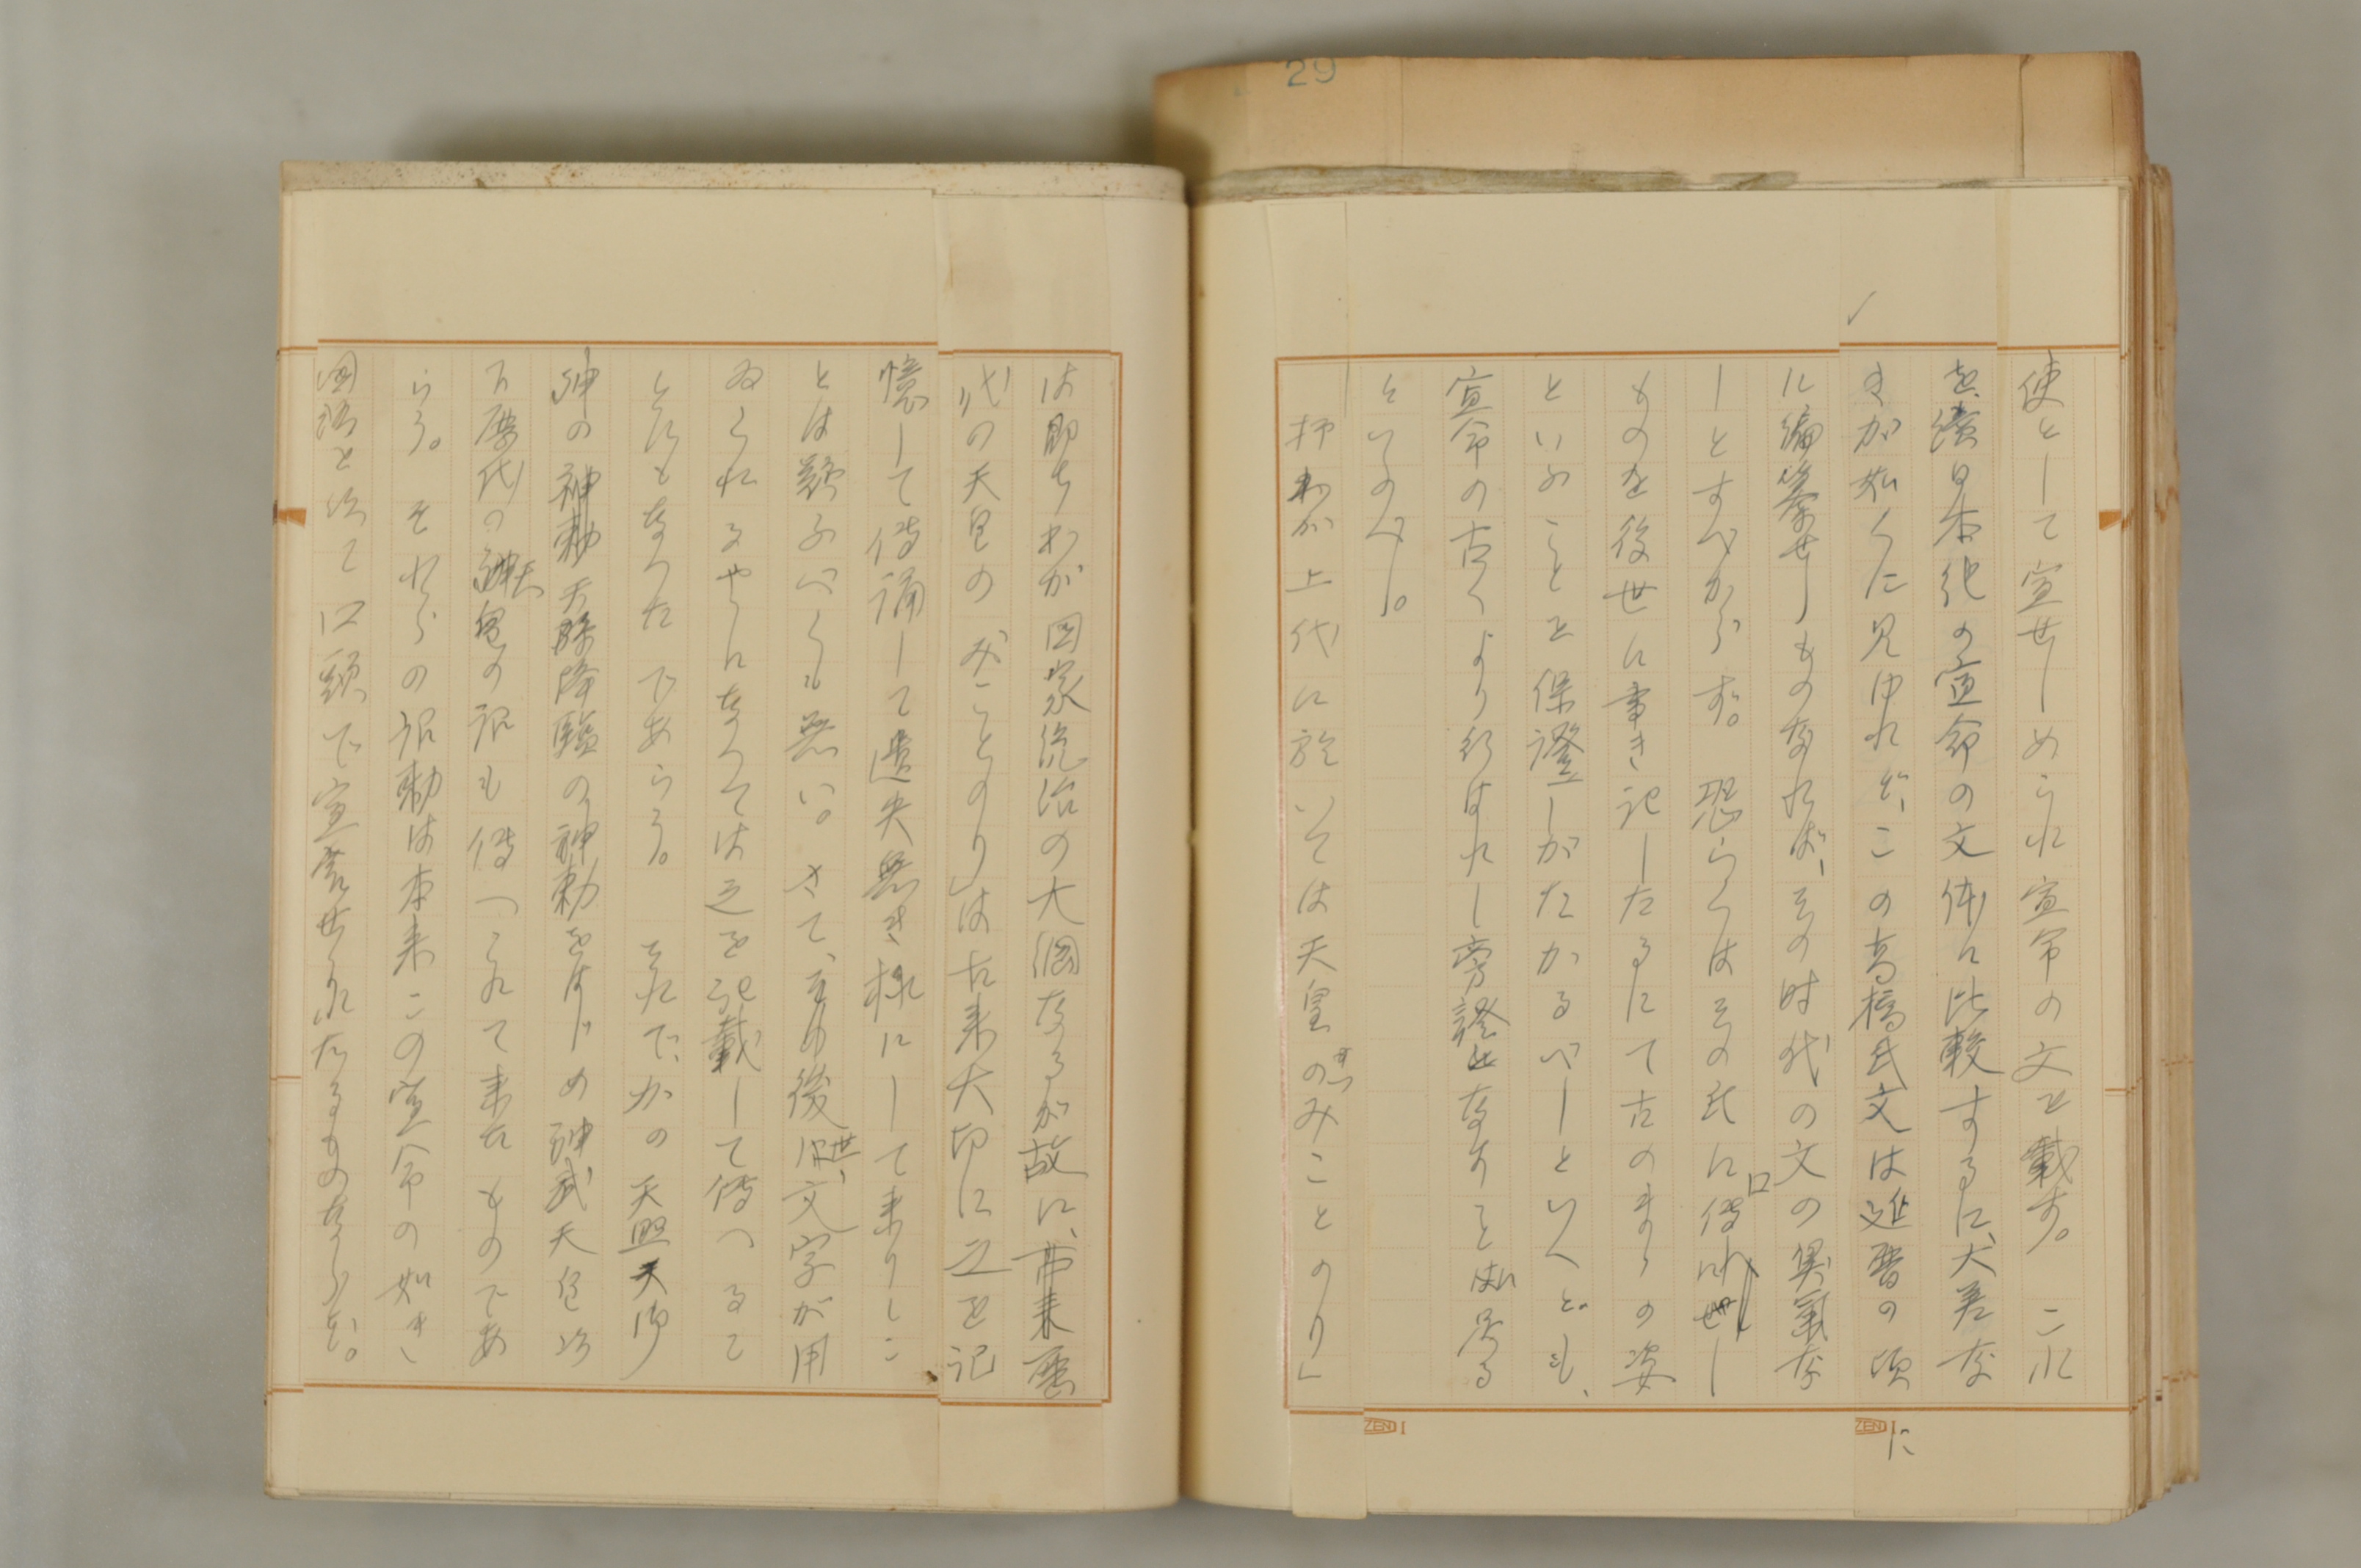 29
使として宣せしめられ宣命の文を載す。これ
を續日本紀の宣命の文体に比較するに、大差な
きが如くに見ゆれど、この高橋氏文は延暦の頃
に編纂せしものなれば、その時代の文の臭氣な
しとすべからず。恐らくはその氏に口傳
ものを後世に書き記したるにて古のまゝの姿
といふことを保證しがたかるべしといへども、
宣命の古くより行はれし旁證となすことは得る
といつべし。
抑わが上代に於いては天皇のみことのり」
は即ちわが国家統治の大綱なるが故に、古来歴
代の天皇の「みことのり」は古来大切に之を記
憶して傳誦して遺失無き様にして来りしこ
とは疑ふべくも無い。さて、その後世、文字が用
ゐられるやうになつては之を記載して傳へるこ
とにもなつたであらう。それで、かの天照大御
神の神勅天孫降臨の神勅をはじめ神武天皇以
下歴代の天皇の詔も傳へられて来たものであ
らう。それらの詔勅は本来この宣命の如き
国語を以て口頭で宣告せられたるものならむ。
ZEN I
ZEN I
に